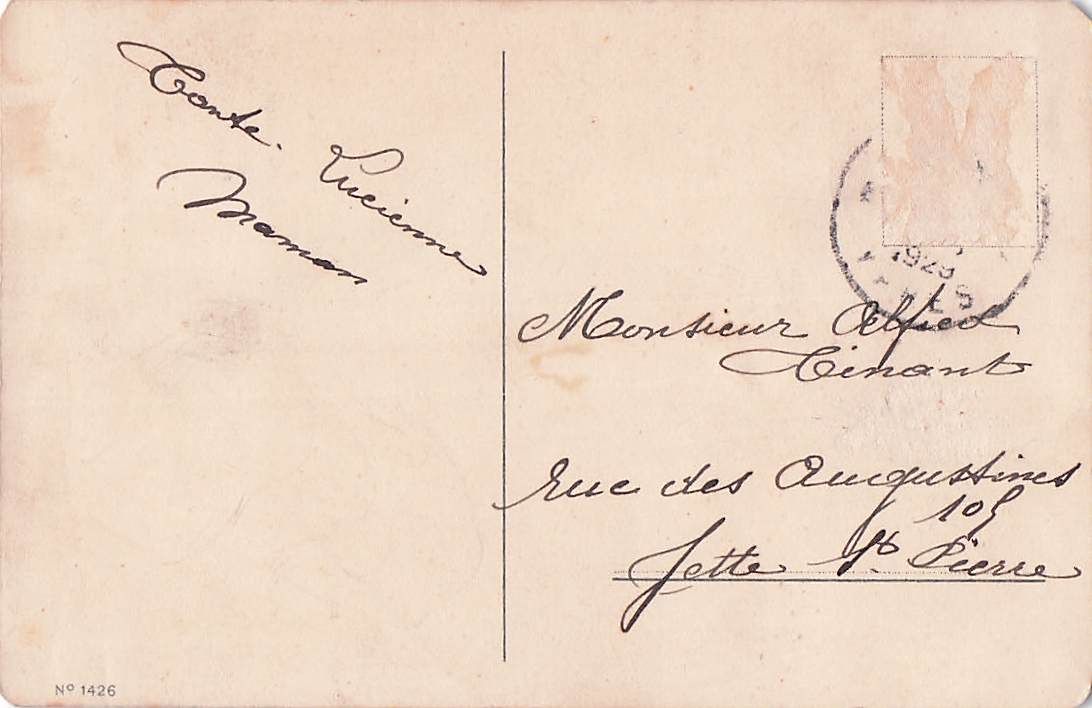 Tante Lucienne
Maman
Monsieur Alfred
Tinant
Rue des Augustines
105
Jette St. Pierre
1923
LES
Nº 1426